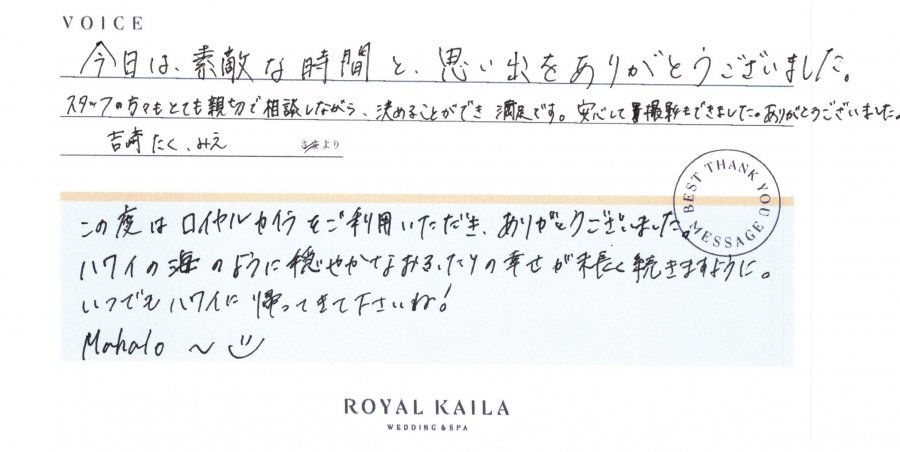 VOICE
今日は、素敵な時間と、思い出をありがとうございました。
スタッフの方々もとても親切で相談しながら、決めることができ満足です。安心して撮影もできました。ありがとうございました。
吉崎 たく、みえ より
BEST THANK YOU MESSAGE
この度はロイヤルカイラをご利用いただき、ありがとうございました。
ハワイの海のように穏やかなおふたりの幸せが末長く続きますように。
いつでもハワイに帰ってきて下さいね!
Mahalo ~
ROYAL KAILA
WEDDING & SPA